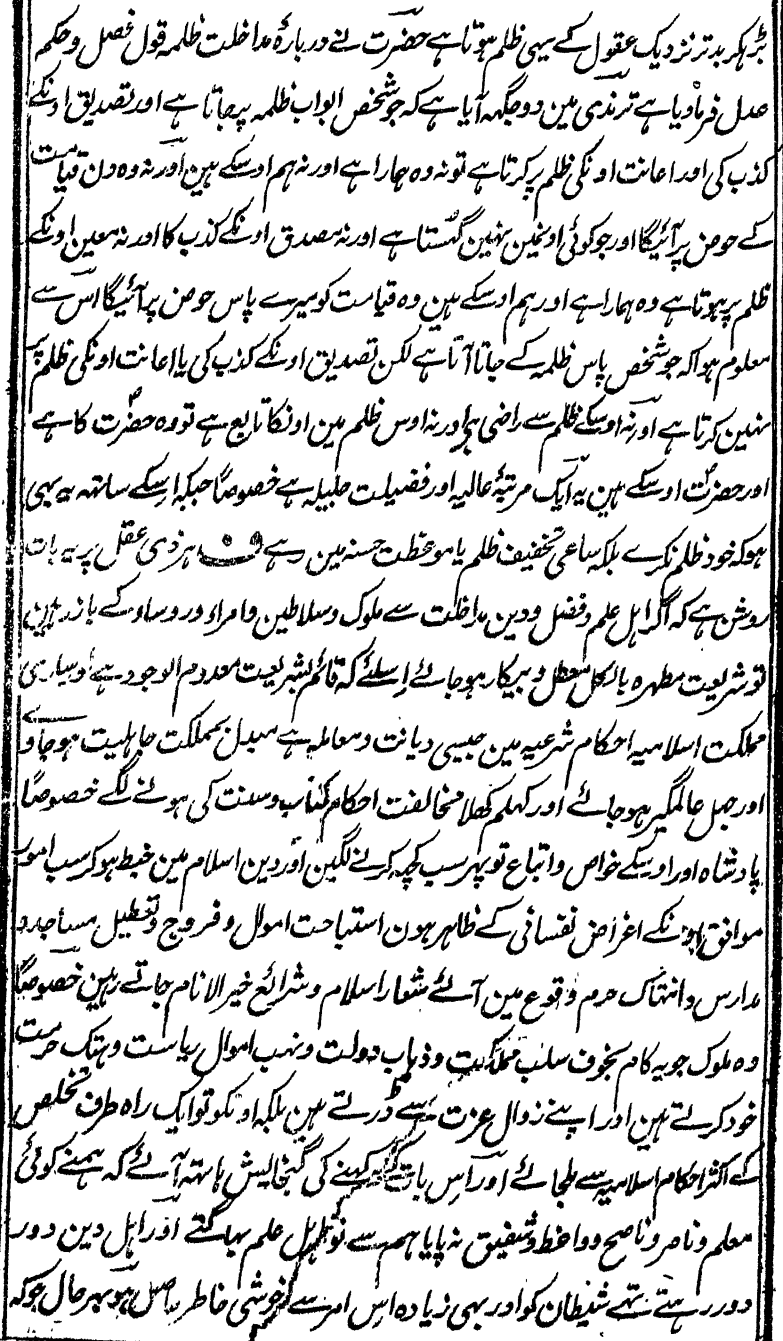 بڑھکر بدتر نزدیک عقول کے یہی ظلم ہوتا ہے حضرت نے دربارۂ مداخلت ظلمہ قول فصل و حکم
عدل فرما دیا ہے ترمذی مین دو جگہہ آیا ہے کہ جو شخص ابواب ظلمہ پر جاتا ہے اور تصدیق اونکے
کذب کی اور اعانت اونکی ظلم پر کرتا ہے تو نہ وہ ہمارا ہے اور نہ ہم اوسکے ہین اور نہ وہ دن قیامت
کے حوض پر آئیگا اور جو کوئی اونمین نہین گہستا ہے اور نہ مصدق اونکے کذب کا اور نہ معین اونکے
ظلم پر ہوتا ہے وہ ہمارا ہے اور ہم اوسکے ہین وہ قیامت کو میرے پاس حوض پر آئیگا اس سے
معلوم ہوا کہ جو شخص پاس ظلمہ کے جاتا آتا ہے لکن تصدیق اونکے کذب کی یا اعانت اونکی ظلم پر
نہین کرتا ہے اور نہ اوسکے ظلم سے راضی ہی اور نہ اوس ظلم مین اونکا تابع ہے تو وہ حضرت کا ہے
اور حضرت اوسکے ہین یہ ایک مرتبۂ عالیہ اور فضیلت جلیلہ ہے خصوصاً جبکہ اسکے ساتھہ یہ بہی
ہو کہ خود ظلم نکرے بلکہ ساعی تخفیف ظلم یا موعظت حسنہ مین رہے ف ہر ذی عقل پر یہ بات
روشن ہے کہ اگر اہل علم و فضل و دین مداخلت سے ملوک و سلاطین و امراء و روساء کے باز رہین
تو شریعت مطہرہ بالکل معطل و بیکار ہو جائے اسلئے کہ قائم بشریعت معدوم الوجود ہے اور ساری
مملکت اسلامیہ احکام شرعیہ مین جیسی دیانت و معاملہ ہے مبدل بمملکت جاہلیت ہو جاوے
اور جہل عالمگیر ہو جائے اور کہلم کھلا مخالفت احکام کتاب و سنت کی ہونے لگے خصوصاً
پادشاہ اور اوسکے خواص و اتباع تو پہر سب کچہہ کرنے لگین اور دین اسلام مین خبط ہو کر سب امور
موافق اونکے اغراض نفسانی کے ظاہر ہون استباحت اموال و فروج و تعطیل مساجد و
مدارس و انتہاک حرم وقوع مین آئے شعار اسلام و شرائع خیر الانام جاتے رہین خصوصاً
وہ ملوک جو یہ کام بخوف سلب مملکت و ذہاب دولت و نہب اموال ریاست و ہتک حرمت
خود کرتے ہین اور اپنے زوال عزت سے ڈرتے ہین بلکہ اونکو تو ایک راہ طرف تخلص
کے اکثر احکام اسلامیہ سے ملجائے اور اس بات کے کہنے کی گنجائیش ہاتہہ آئے کہ ہمنے کوئی
معلم و ناصر و ناصح و واعظ و شفیق نہ پایا ہم سے تو اہل علم بہاگتے اور اہل دین دور
دور رہتے تہے شیطان کو اور بہی زیادہ اس امر سے خوشی خاطر حاصل ہو بہر حال جو کہ